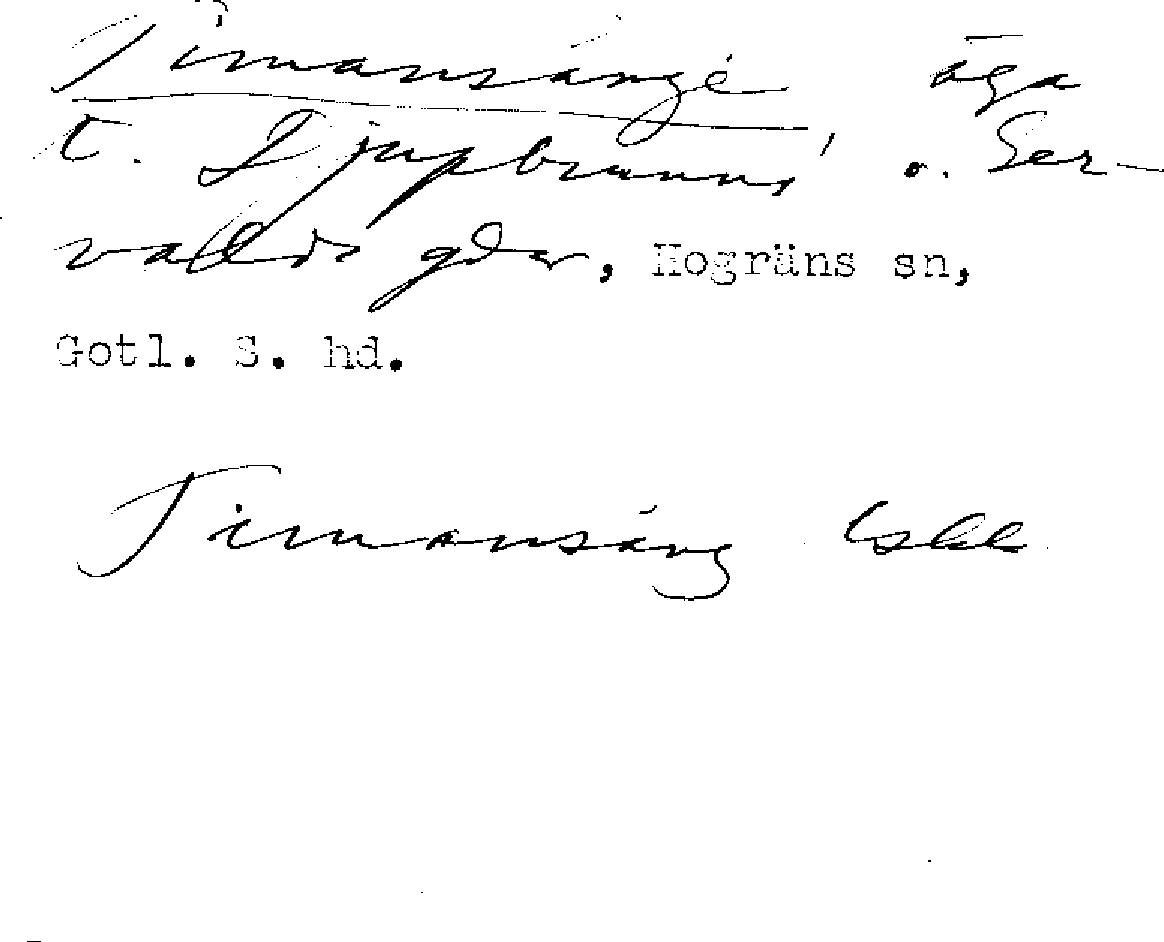 Timansänge äga
t. Djupbrunns o. Ser-
valds gdar, Hogräns sn,
Gotl. S. hd.
Timansäng